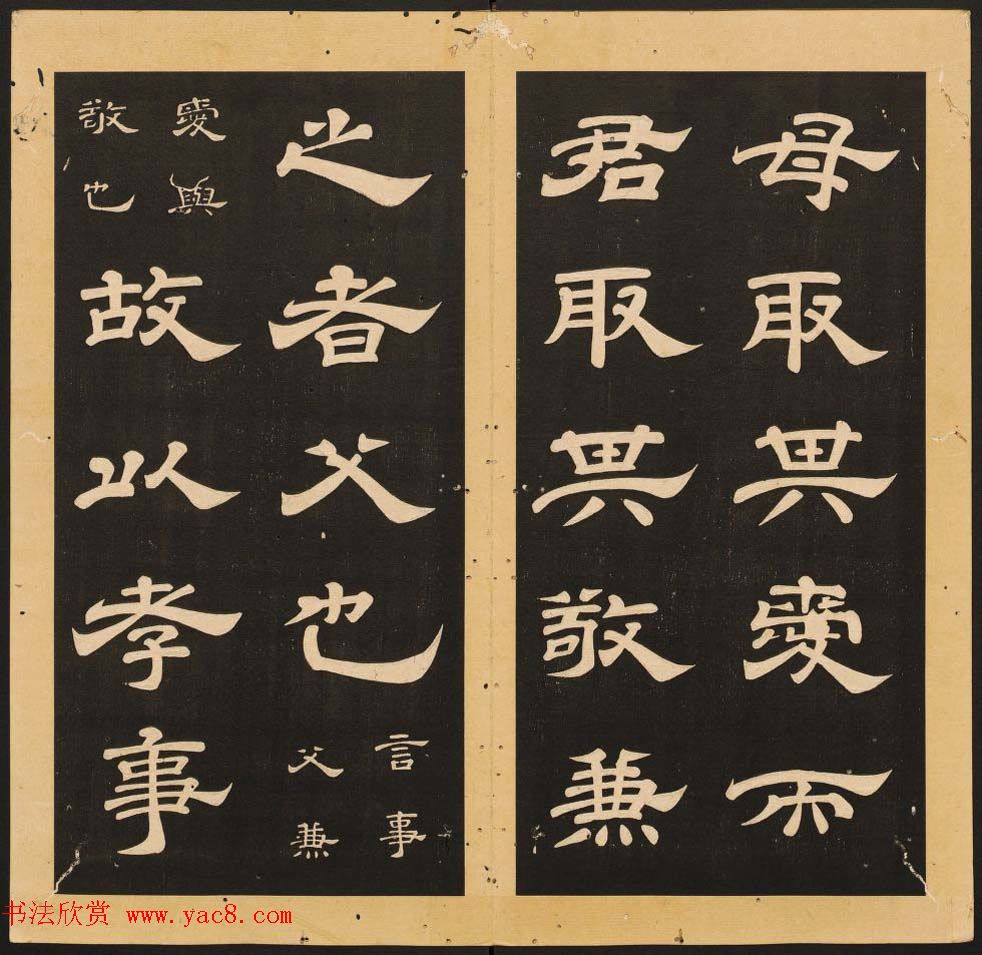 母取其愛而
君取其敬兼
之者父也
言事
父兼
愛與
敬也
故以孝事
书法欣赏 www.yac8.com